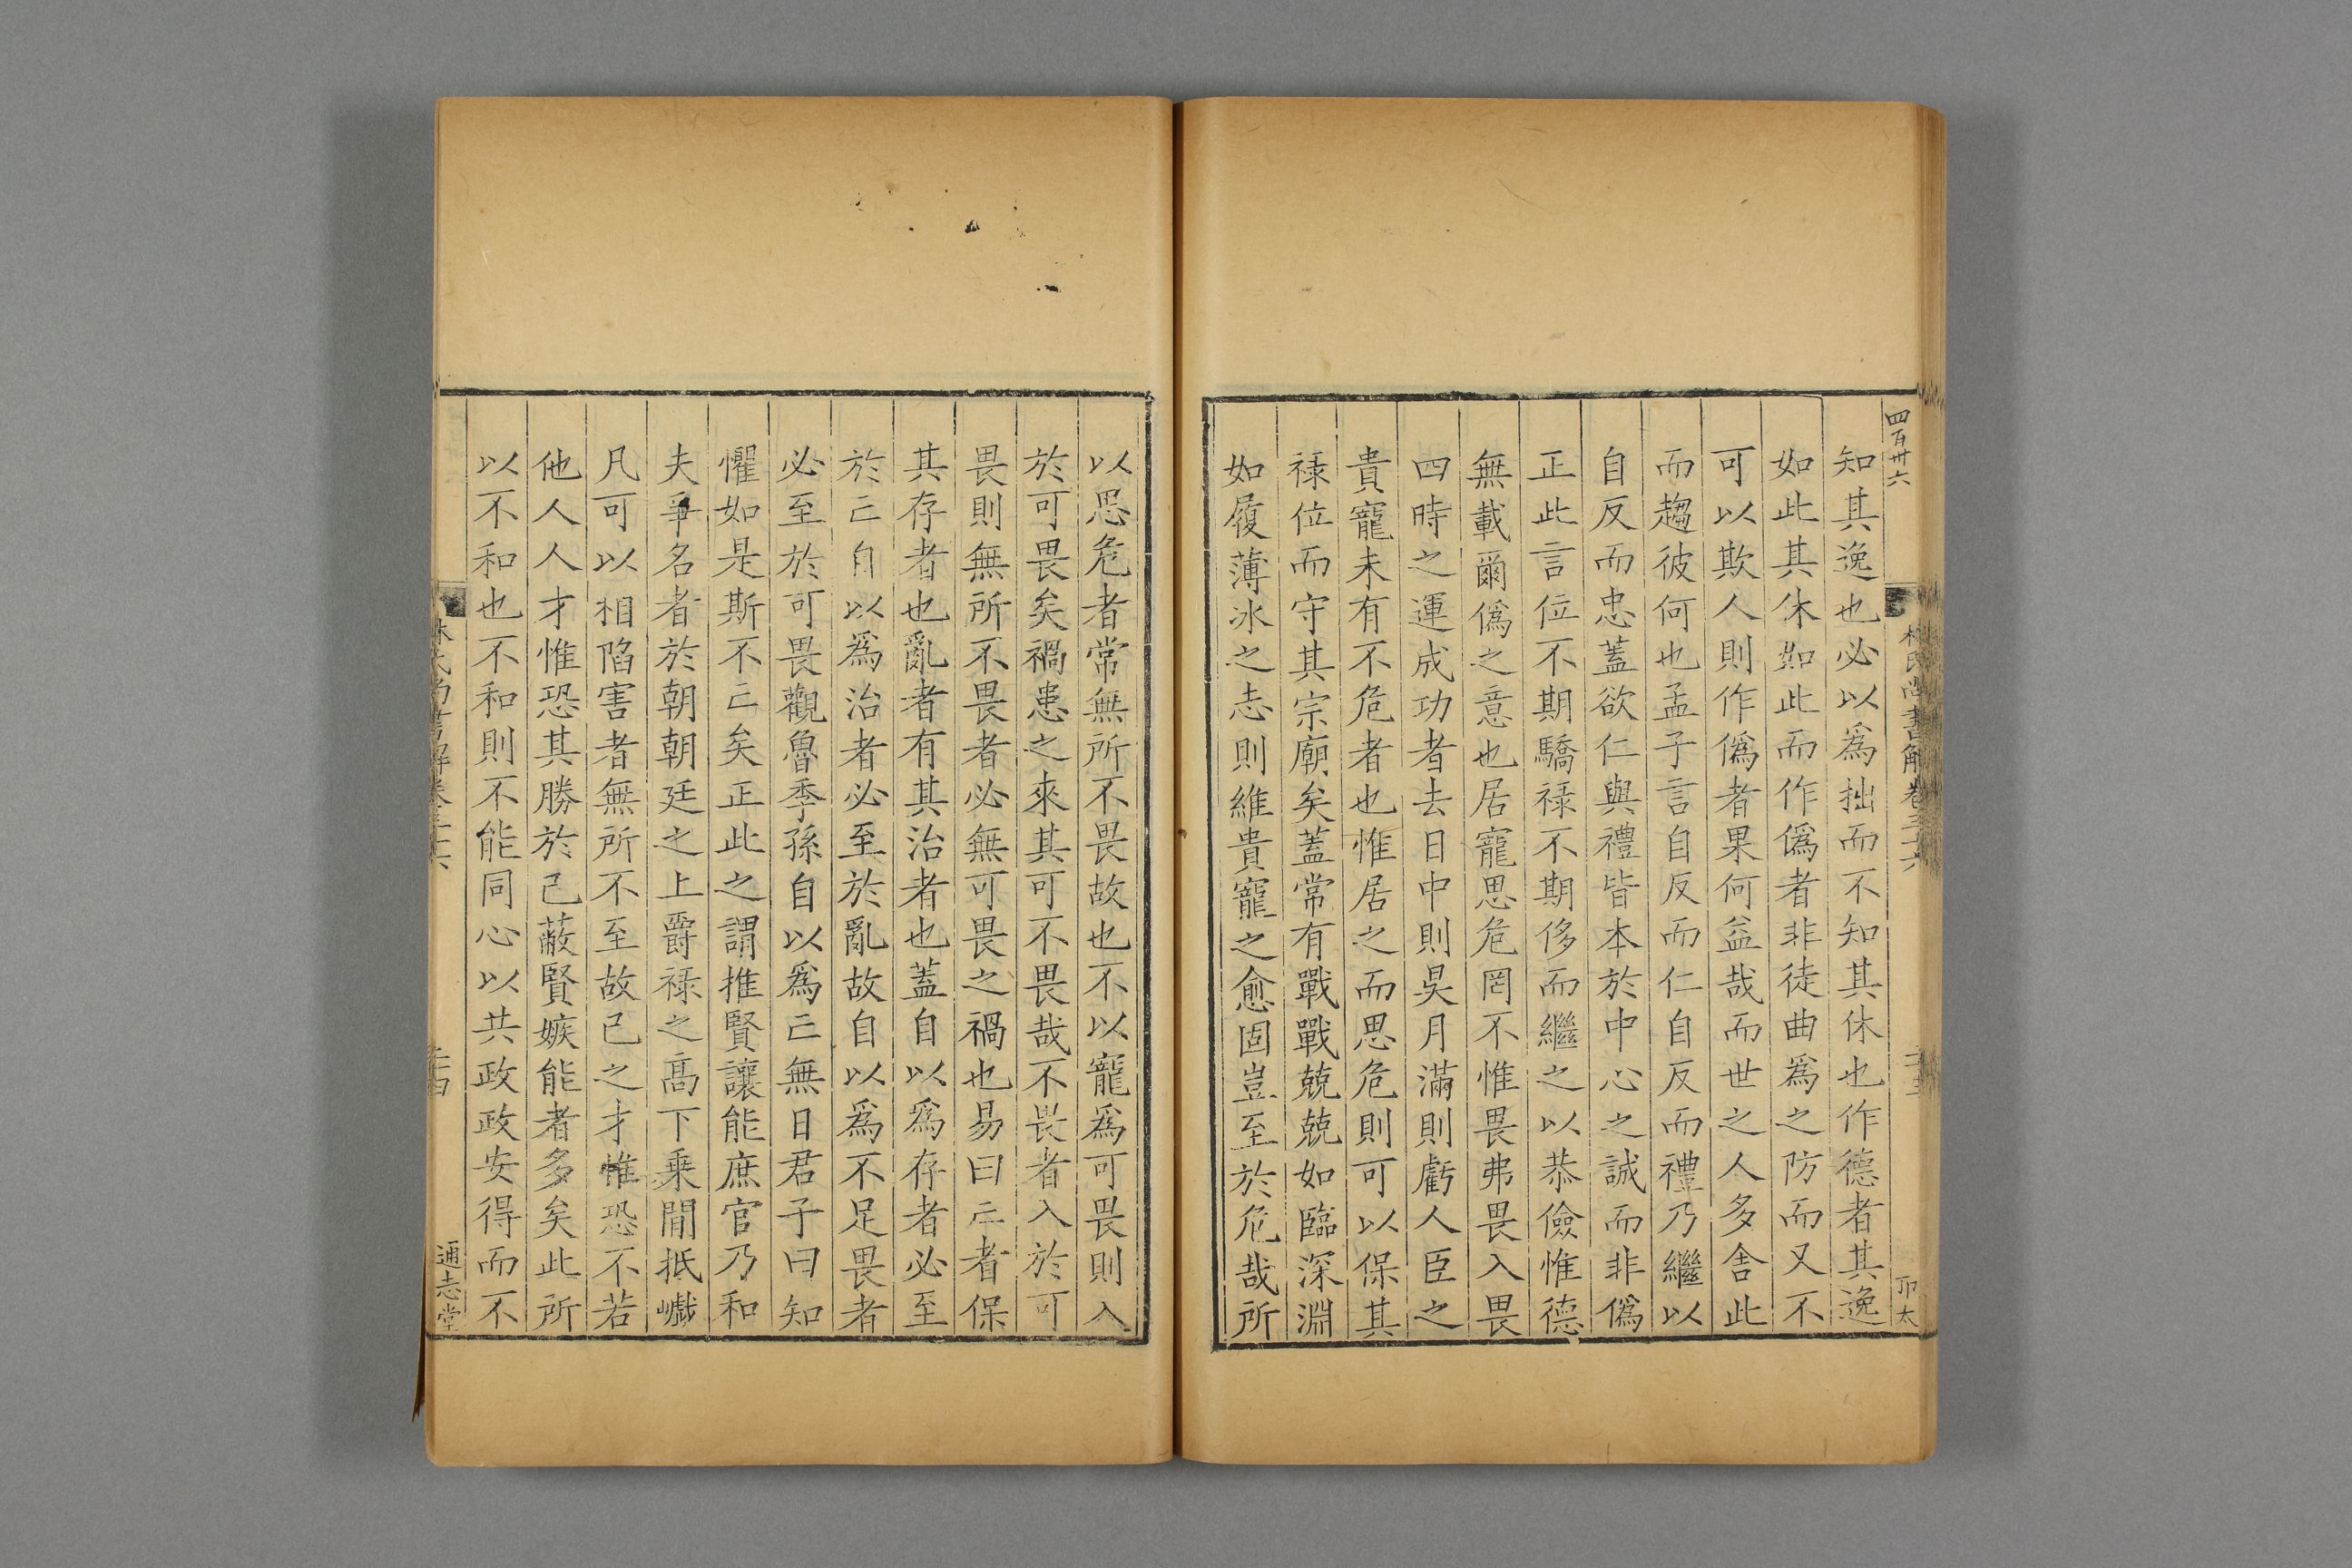 四百卅六
林氏尚書解卷三十六
知其逸也必以爲拙而不知其休也作德者其逸
如此其休如此而作僞者非徒曲爲之防而又不
可以欺人則作僞者果何益哉而世之人多舍此
而趨彼何也孟子言自反而仁自反而禮乃繼以
自反而忠蓋欲仁與禮皆本於中心之誠而非僞
正此言位不期驕祿不期侈而繼之以恭儉惟德
無載爾僞之意也居寵思危罔不惟畏弗畏入畏
四時之運成功者去日中則昃月滿則虧人臣之
貴寵未有不危者也惟居之而思危則可以保其
祿位而守其宗廟矣蓋常有戰戰兢兢如臨深淵
如履薄冰之志則維貴寵之愈固豈至於危哉所
以思危者常無所不畏故也不以寵爲可畏則入
於可畏矣禍患之來其可不畏哉不畏者入於可
畏則無所不畏者必無可畏之禍也易曰亡者保
其存者也亂者有其治者也蓋自以爲存者必至
於亡自以爲治者必至於亂故自以爲不足畏者
必至於可畏觀魯季孫自以爲亡無日君子曰知
懼如是斯不亡矣正此之謂推賢讓能庶官乃和
夫爭名者於朝朝廷之上爵祿之高下乗閒抵巇
凡可以相陷害者無所不至故己之才惟恐不若
他人人才惟恐其勝於己蔽賢嫉能者多矣此所
以不和也不和則不能同心以共政政安得而不
林氏尚書解卷三十六
通志堂